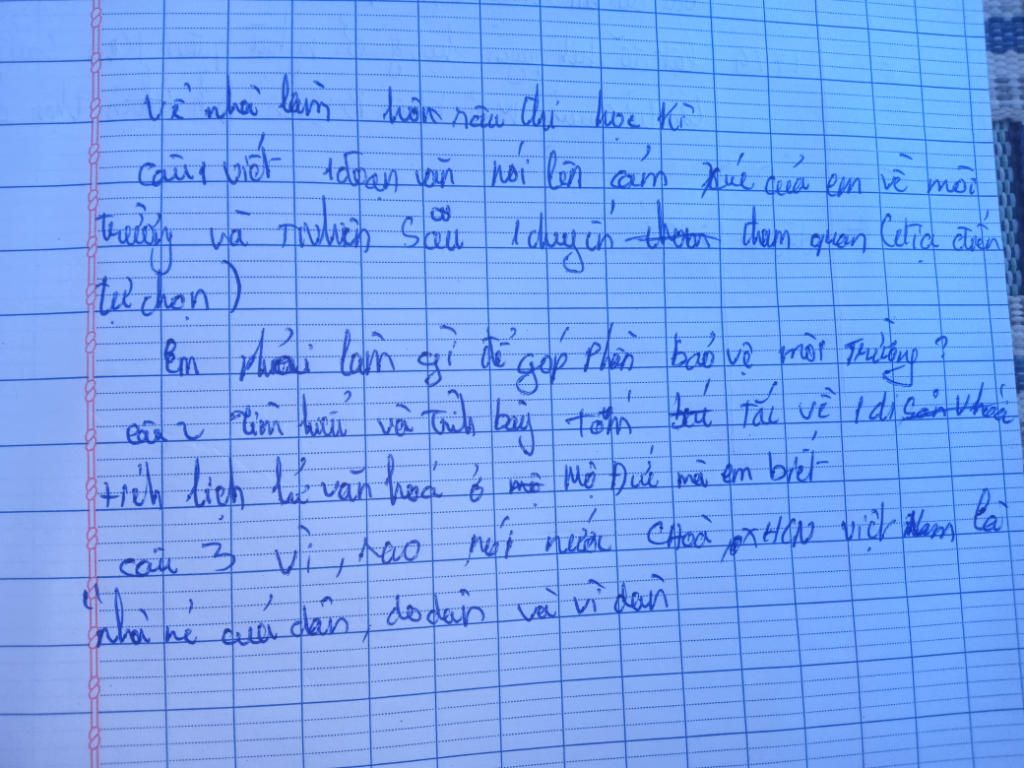 Về nhà làm hôm sau thi học kì
câu 1 viết 1 đoạn văn nói lên cảm xúc của em về môi
trường và TNhiên Sau 1 chuyến tham quan (địa điểm
tự chọn)
Em Phải làm gì để góp Phần bảo vệ môi Trường?
câu 2 Tìm hiểu và Trình bày tóm tắt về 1 di sản Vhoá
tích lịch sử văn hoá ở Mộ Đức mà em biết
câu 3 Vì sao nói nước CHoà XHCN việt Nam là
"nhà nc của dân, do dân và vì dân